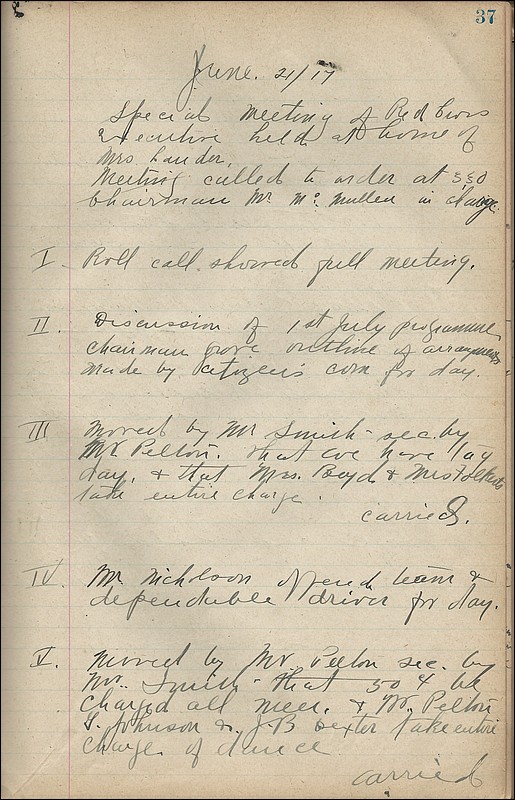 37
June. 21/17
Special meeting of Red Cross
executive held at home of
Mrs. Lauder.
Meeting called to order at 5:30
Chairman Mr. McMullen in charge.
I Roll call showed full meeting.
II. Discussion of 1st July programme
Chairman gave outline of arrangements
made by citizen's com for day.
III Moved by Mr Smith sec. by
Mr. Pelton. that we have tag
day. & that Mrs. Boyd & Mrs
take entire charge.
carried.
IV Mr. Nicholson offered team &
dependable driver for day.
V. Moved by Mr Pelton sec. by
Mr. Smith that 50¢ be
charged all men. & Mr. Pelton
Johnson & J.B Dexter take entire
charge of dance
carried